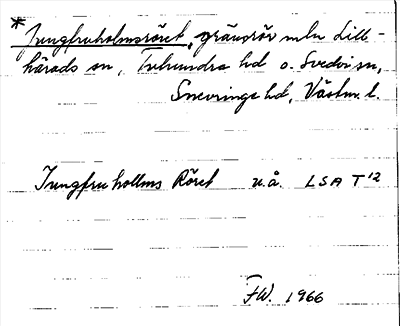 * Jungfruholmsröret, gränsrör mln Lill-
härads sn, Tuhundra hd o. Svedvi sn,
Snevringe hd, Västm. l.
Jungfru hollms Röret u.å. LSA T 12
FW. 1966